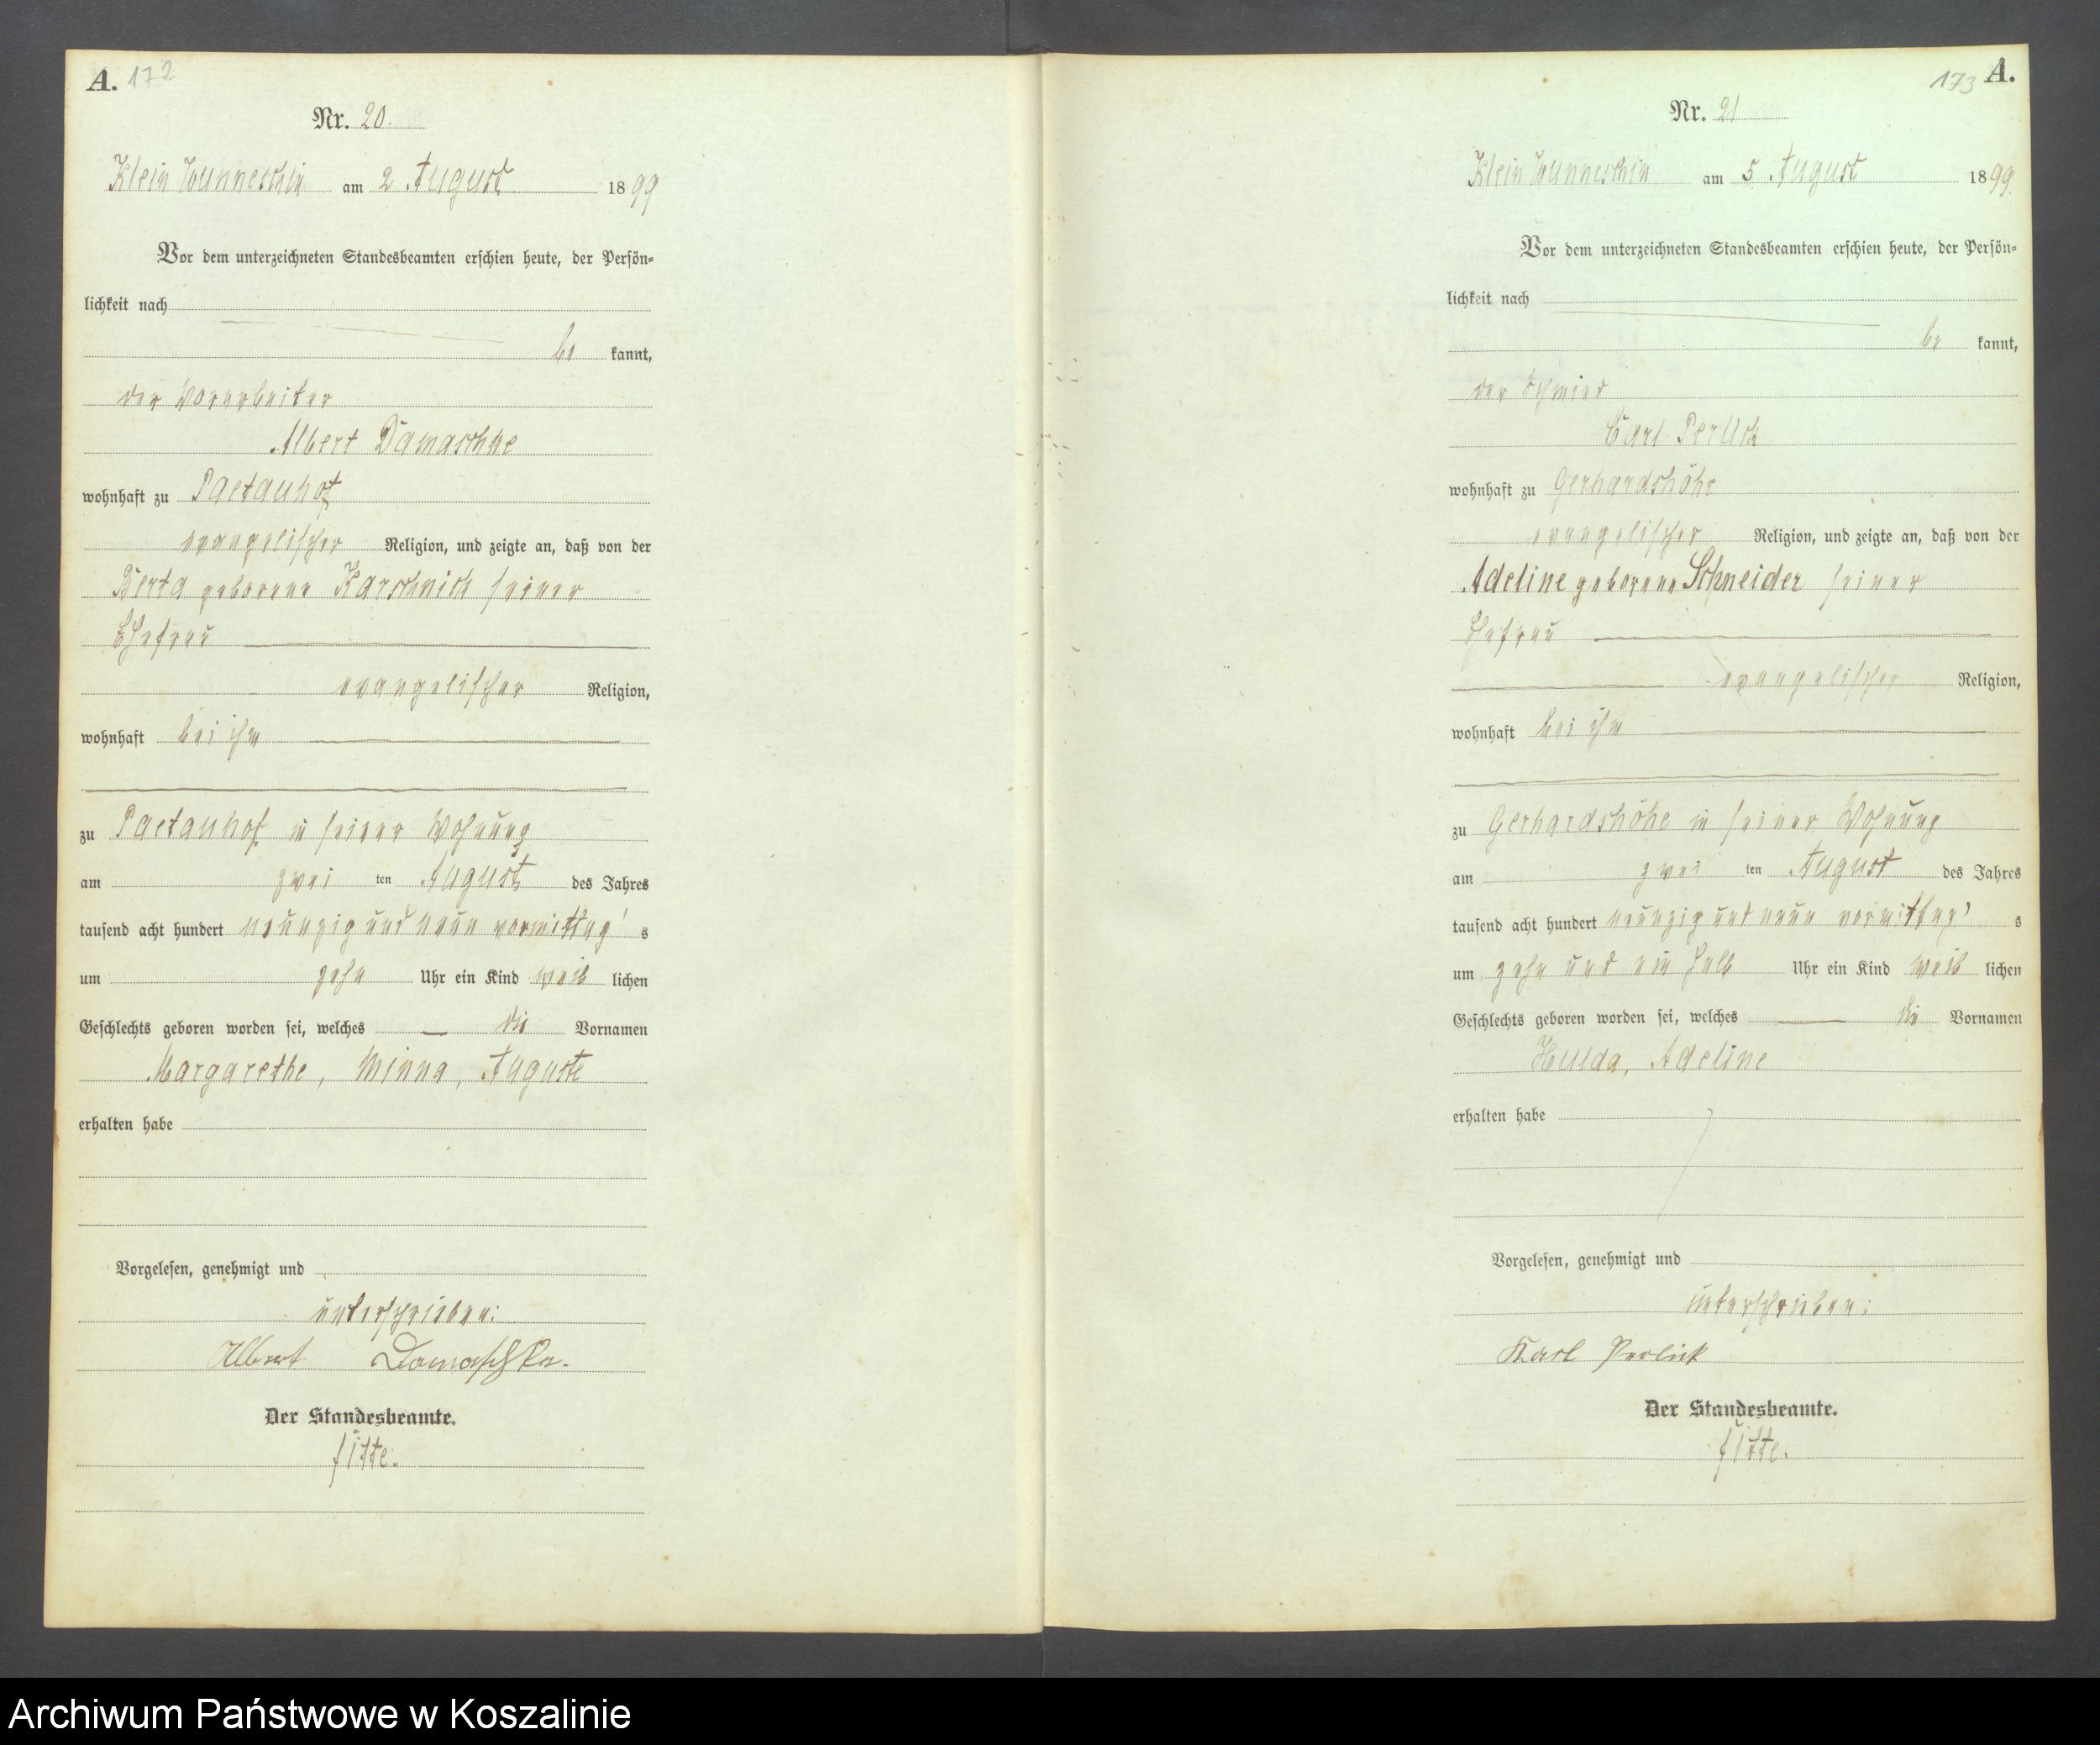 A. 172
Nr. 20.
Klein Wunneschin am 2 August 1899
Vor dem unterzeichneten Standesbeamten erschien heute, der Persön-
lichkeit nach
be kannt,
der Vorarbeiter
Albert Damaschke
wohnhaft zu Paetauhof
evangelischer Religion, und zeigte an, daß von der
Berta geborene Karschnick seiner
Ehefrau
evangelischer Religion,
wohnhaft bei ihm
zu Paetauhof in seiner Wohnung
am zwei ten August des Jahres
tausend acht hundert neunzig und neun vormittag's
um zehn Uhr ein Kind weib lichen
Geschlechts geboren worden sei, welches die Vornamen
Margarethe, Minna, Auguste
erhalten habe
Vorgelesen, genehmigt und
unterschrieben:
Albert Damaschke.
Der Standesbeamte.
Fitte.
173 A.
Nr. 21
Klein Wunneschin am 5 August 1899.
Vor dem unterzeichneten Standesbeamten erschien heute, der Persön-
lichkeit nach
be kannt,
der Schmied
Carl Perlick
wohnhaft zu Gerhardshöhe
evangelischer Religion, und zeigte an, daß von der
Adeline geborene Schneider seiner
Ehefrau
evangelischer Religion,
wohnhaft bei ihm
zu Gerhardshöhe in seiner Wohnung
am zwei ten August des Jahres
tausend acht hundert neunzig und neun vormittag's
um zehn und ein halb Uhr ein Kind weib lichen
Geschlechts geboren worden sei, welches die Vornamen
Hulda, Adeline
erhalten habe
Vorgelesen, genehmigt und
unterschrieben:
Karl Perlick
Der Standesbeamte.
Fitte.
Archiwum Państwowe w Koszalinie